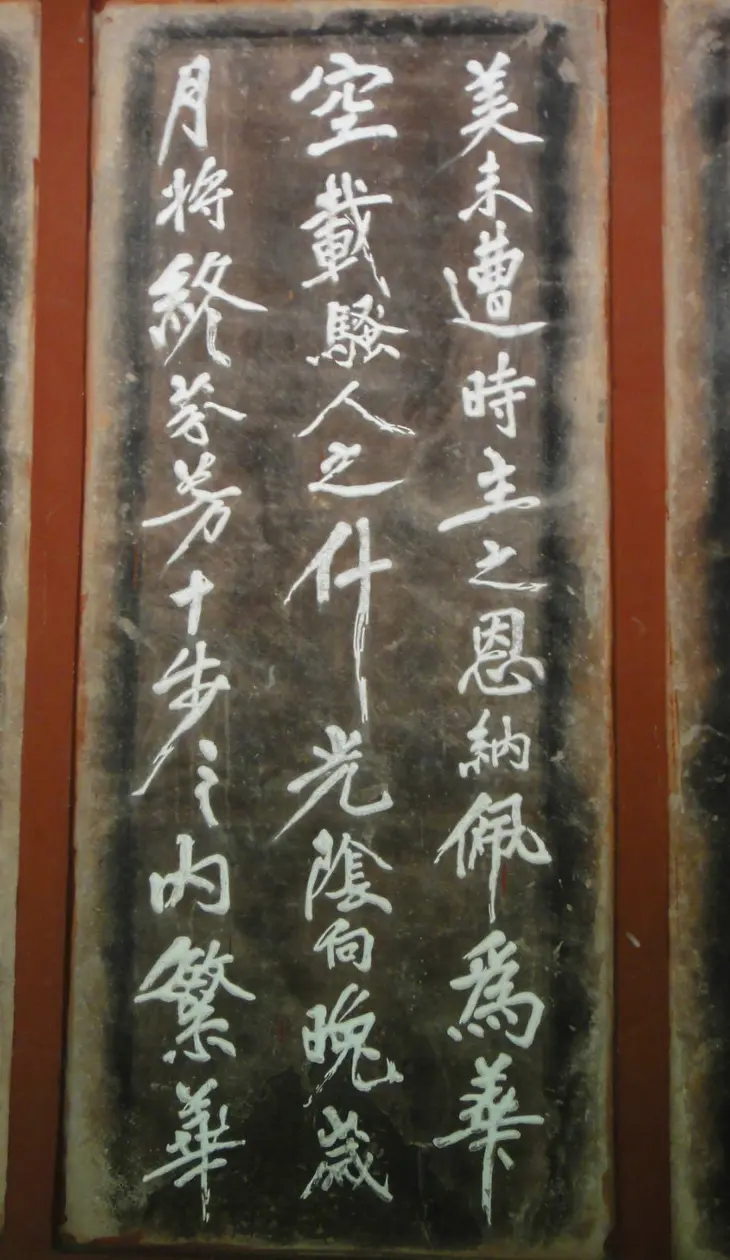 美未遭時主之恩納佩為華
空載騷人之什光陰向晚歲
月將終芬芳十步之内繁華